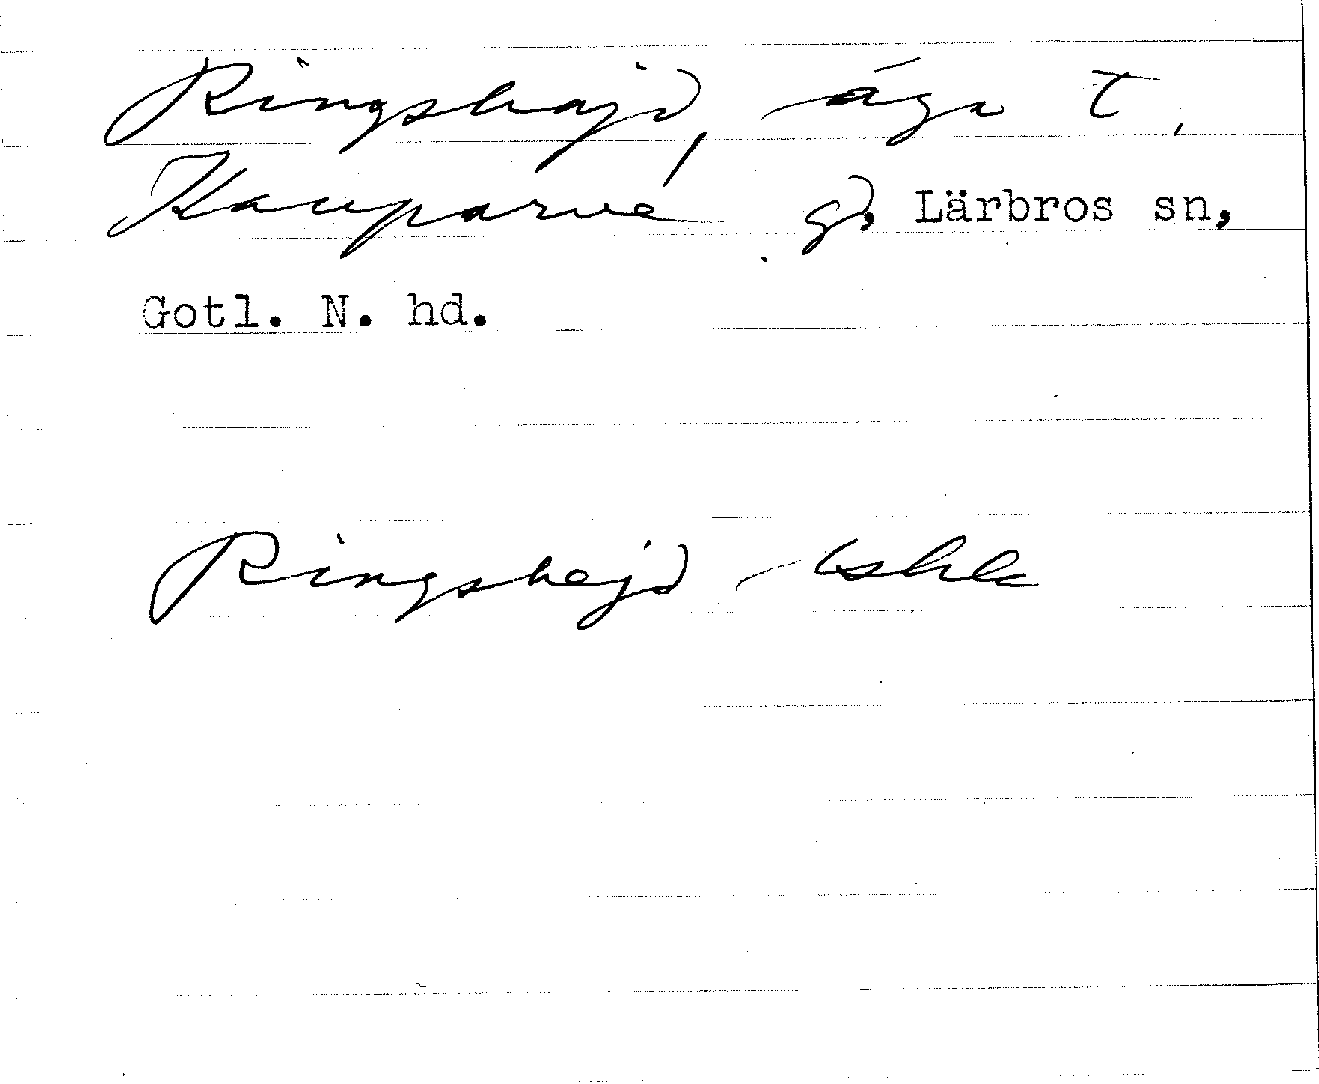 Ringshajd, äga t.
Kauparve gd. Lärbros sn,
Gotl. N. hd.
Ringshajd